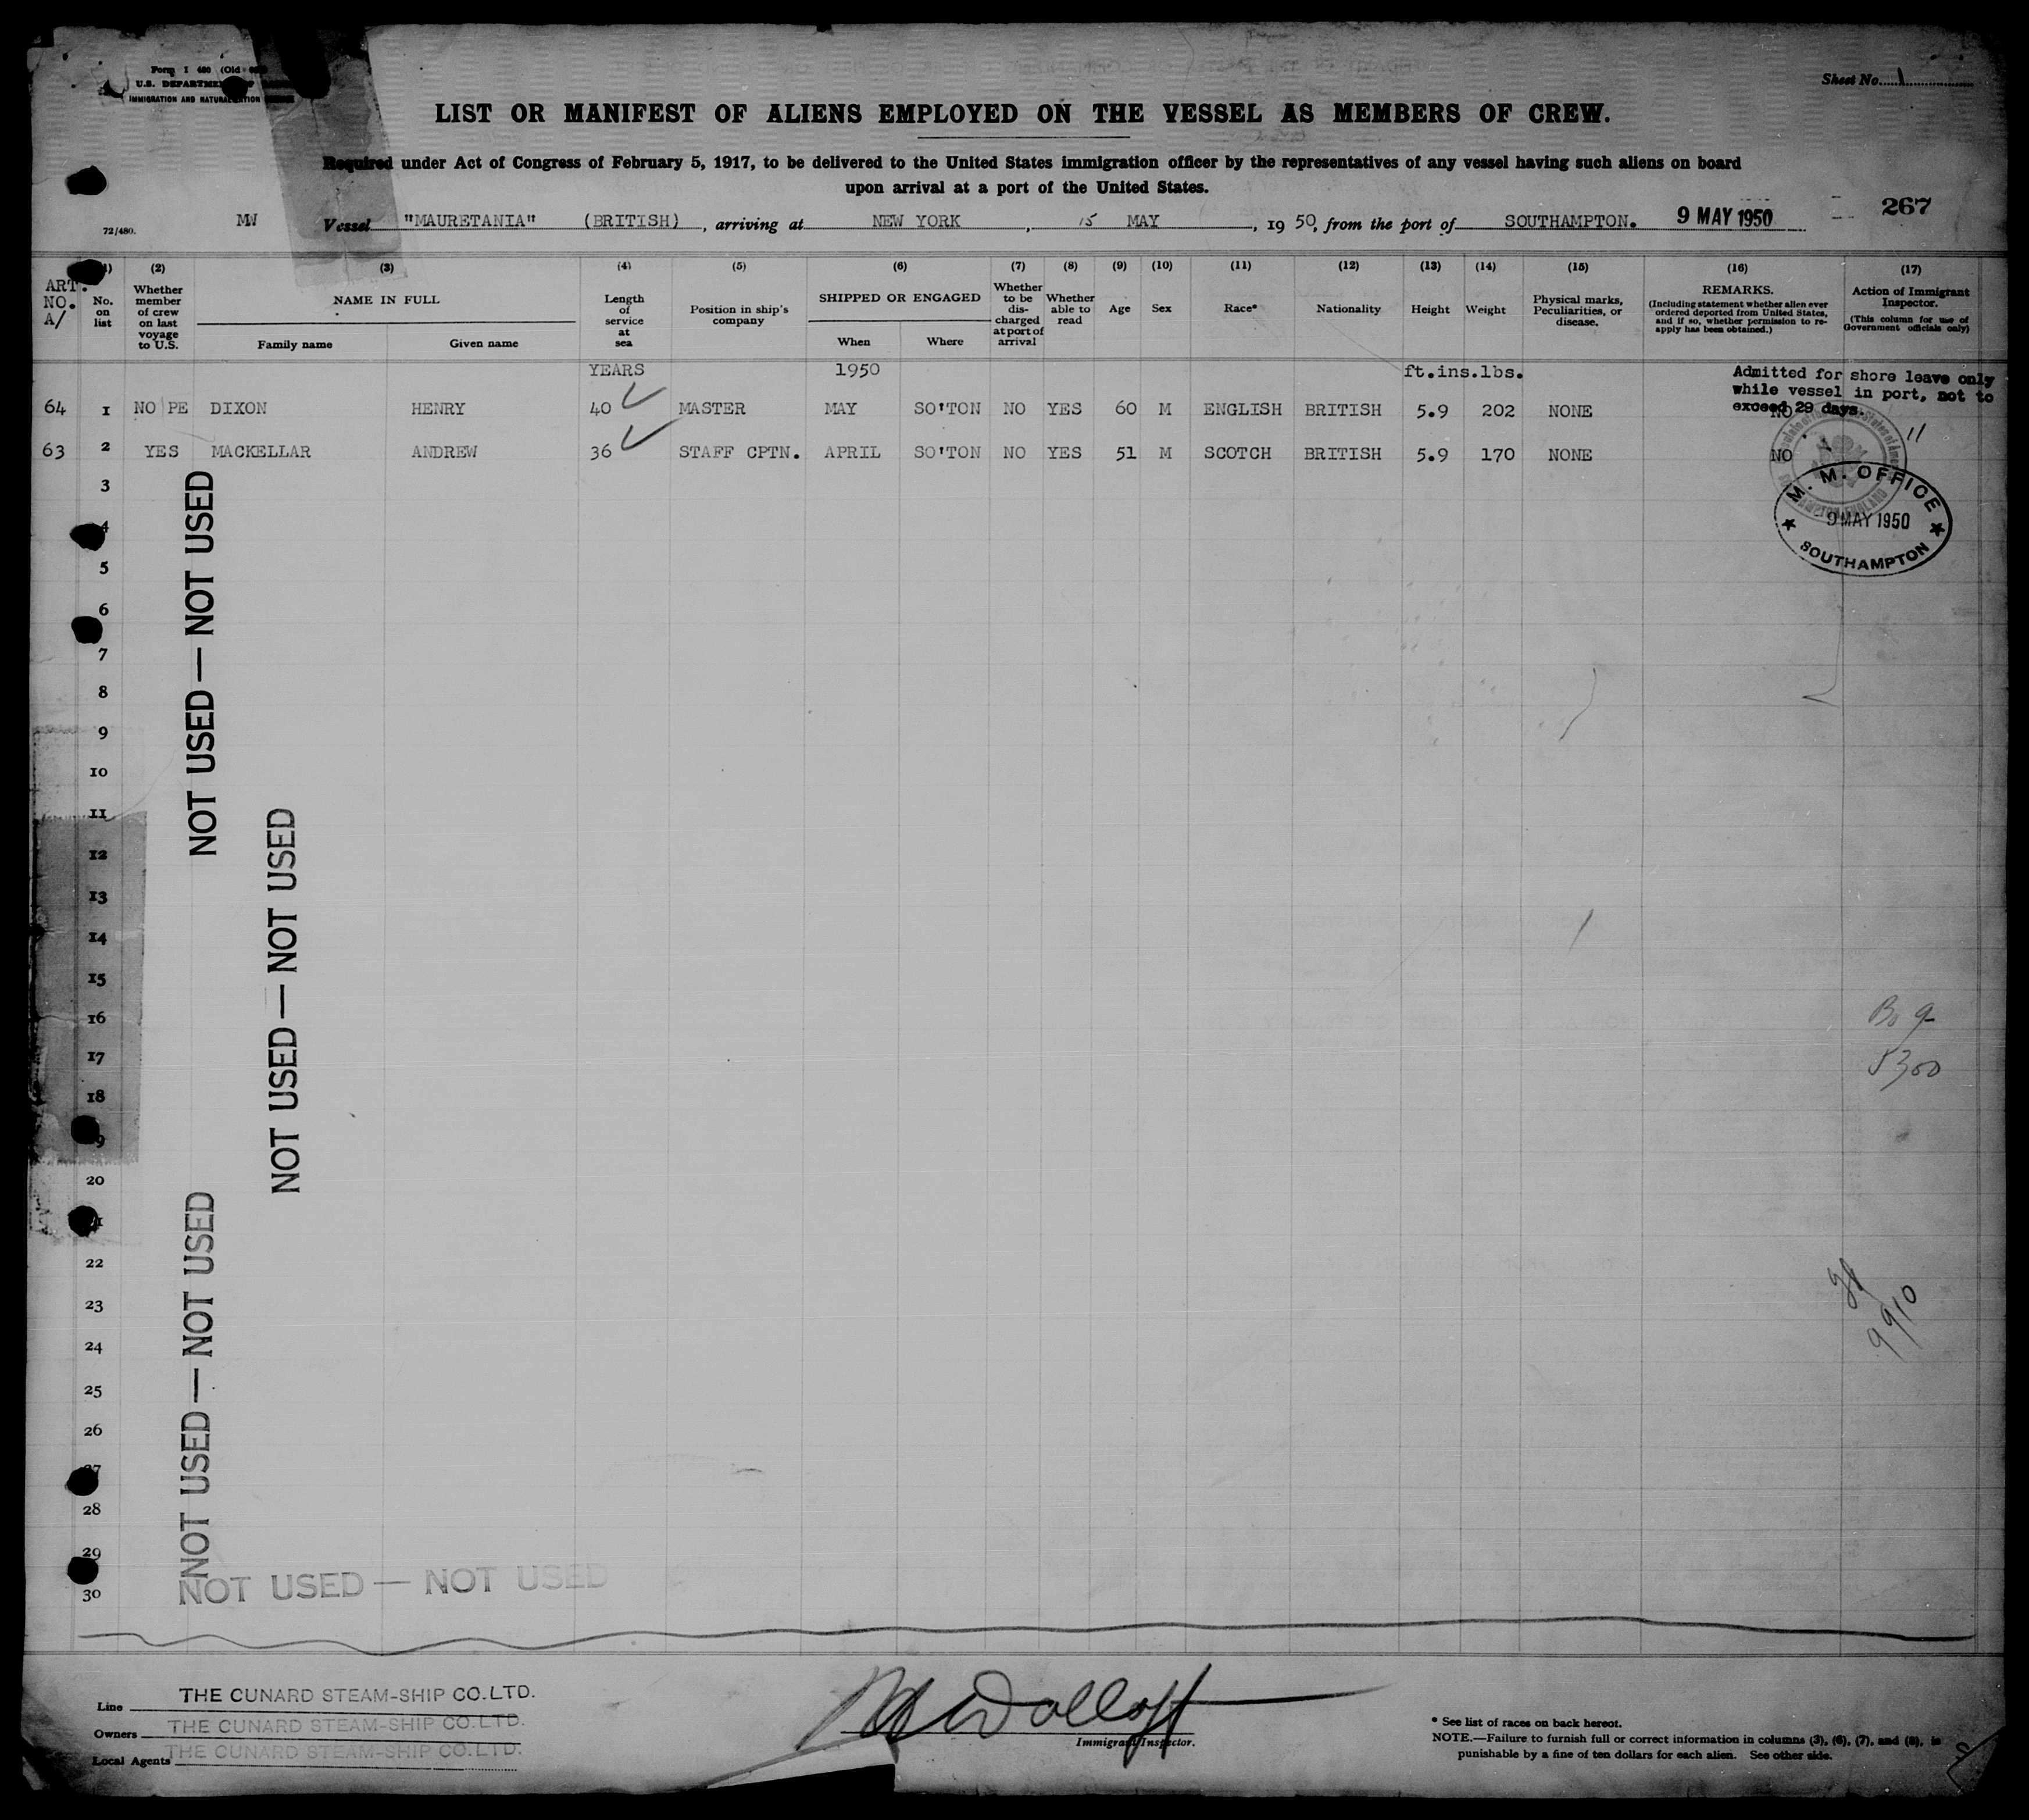 Form I 480 (Old
U.S. DEPARTMENT OF
IMMIGRATION AND NATURALIZATION
Sheet No. 1
LIST OR MANIFEST OF ALIENS EMPLOYED ON THE VESSEL AS MEMBERS OF CREW.
Required under Act of Congress of February 5, 1917, to be delivered to the United States immigration officer by the representatives of any vessel having such aliens on board
upon arrival at a port of the United States.
267
72/480. MW Vessel "MAURETANIA" (BRITISH), arriving at NEW YORK, 15 MAY, 1950, from the port of SOUTHAMPTON. 9 MAY 1950
ART. NO. A/
(1) No. on list
(2) Whether member of crew on last voyage to U.S.
(3) NAME IN FULL
Family name Given name
(4) Length of service at sea
(5) Position in ship's company
(6) SHIPPED OR ENGAGED
When Where
(7) Whether to be discharged at port of arrival
(8) Whether able to read
(9) Age
(10) Sex
(11) Race*
(12) Nationality
(13) Height
(14) Weight
(15) Physical marks, Peculiarities, or disease.
(16) REMARKS. (Including statement whether alien ever ordered deported from United States, and if so, whether permission to re-apply has been obtained.)
(17) Action of Immigrant Inspector. (This column for use of Government officials only)
YEARS 1950 ft.ins.lbs.
Admitted for shore leave only
while vessel in port, not to
exceed 29 days.
64 1 NO PE DIXON HENRY 40 MASTER MAY SO'TON NO YES 60 M ENGLISH BRITISH 5.9 202 NONE NO
63 2 YES MACKELLAR ANDREW 36 STAFF CPTN. APRIL SO'TON NO YES 51 M SCOTCH BRITISH 5.9 170 NONE NO
11
M. M. OFFICE
9 MAY 1950
SOUTHAMPTON
3
4
5
6
7
8
9
10
11
12
13
14
15
16
17
18
19
20
21
22
23
24
25
26
27
28
29
30
NOT USED — NOT USED
NOT USED — NOT USED
NOT USED — NOT USED
NOT USED — NOT USED
5300
910
Line THE CUNARD STEAM-SHIP CO. LTD.
Owners THE CUNARD STEAM-SHIP CO. LTD.
Local Agents THE CUNARD STEAM-SHIP CO. LTD.
Immigrant Inspector.
* See list of races on back hereof.
NOTE.—Failure to furnish full or correct information in columns (3), (6), (7), and (8), is
punishable by a fine of ten dollars for each alien. See other side.